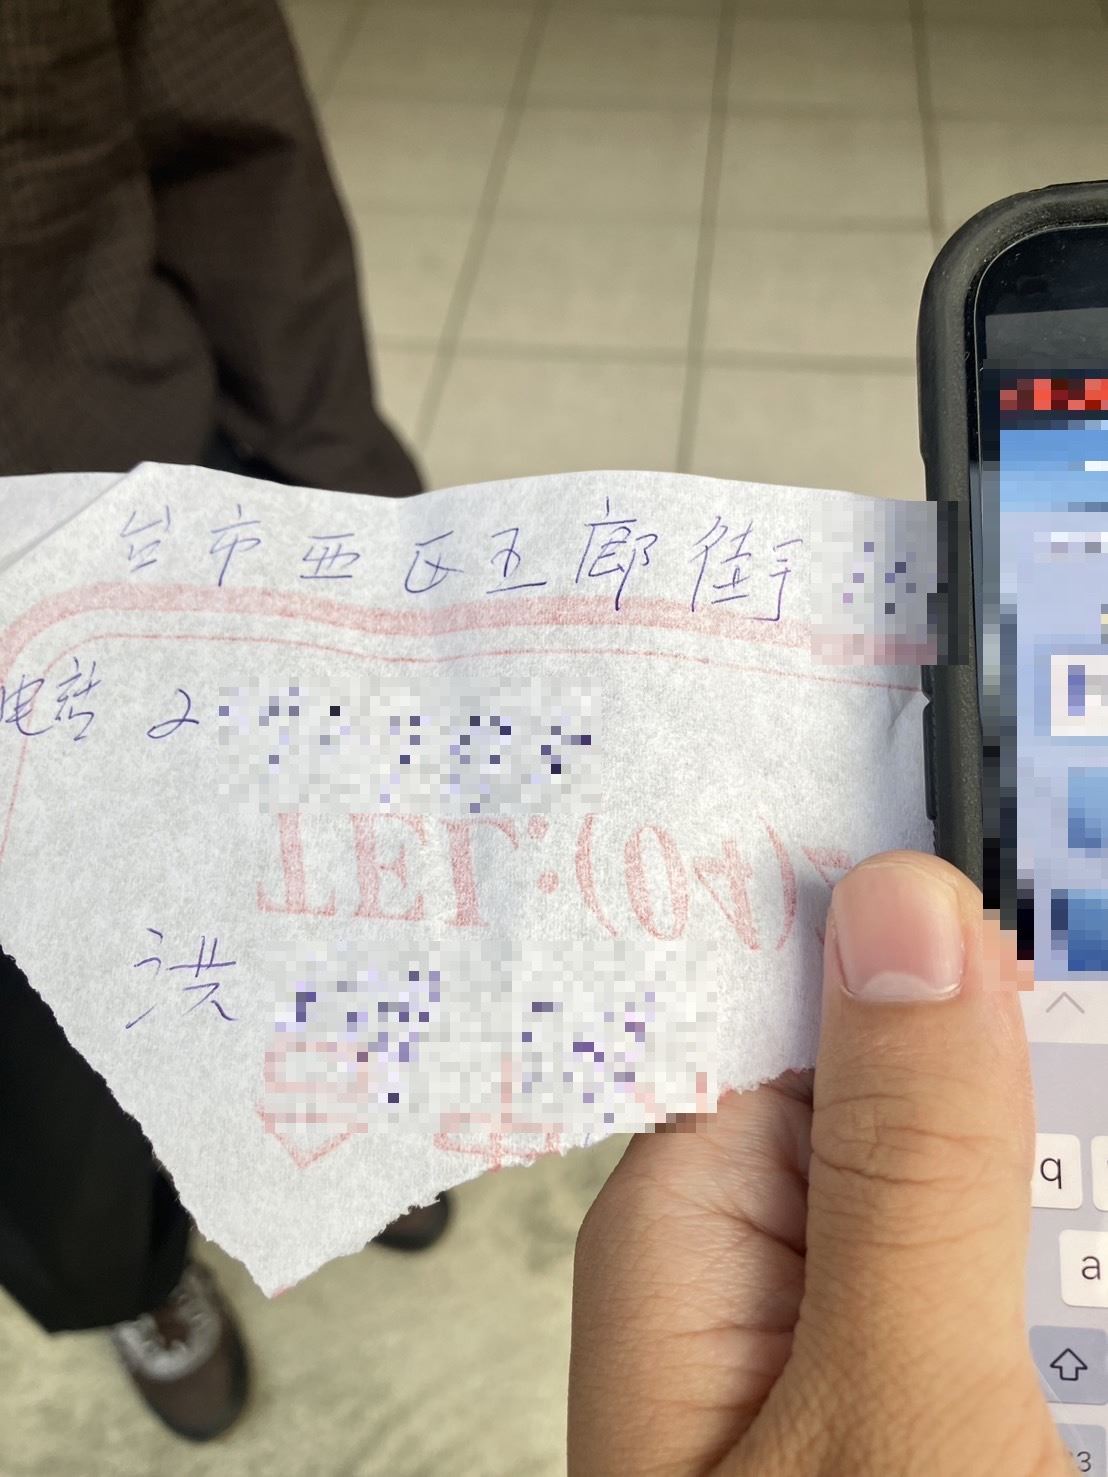 台市西区五廊街
电話 2
TEL:(04)
洪
q
a